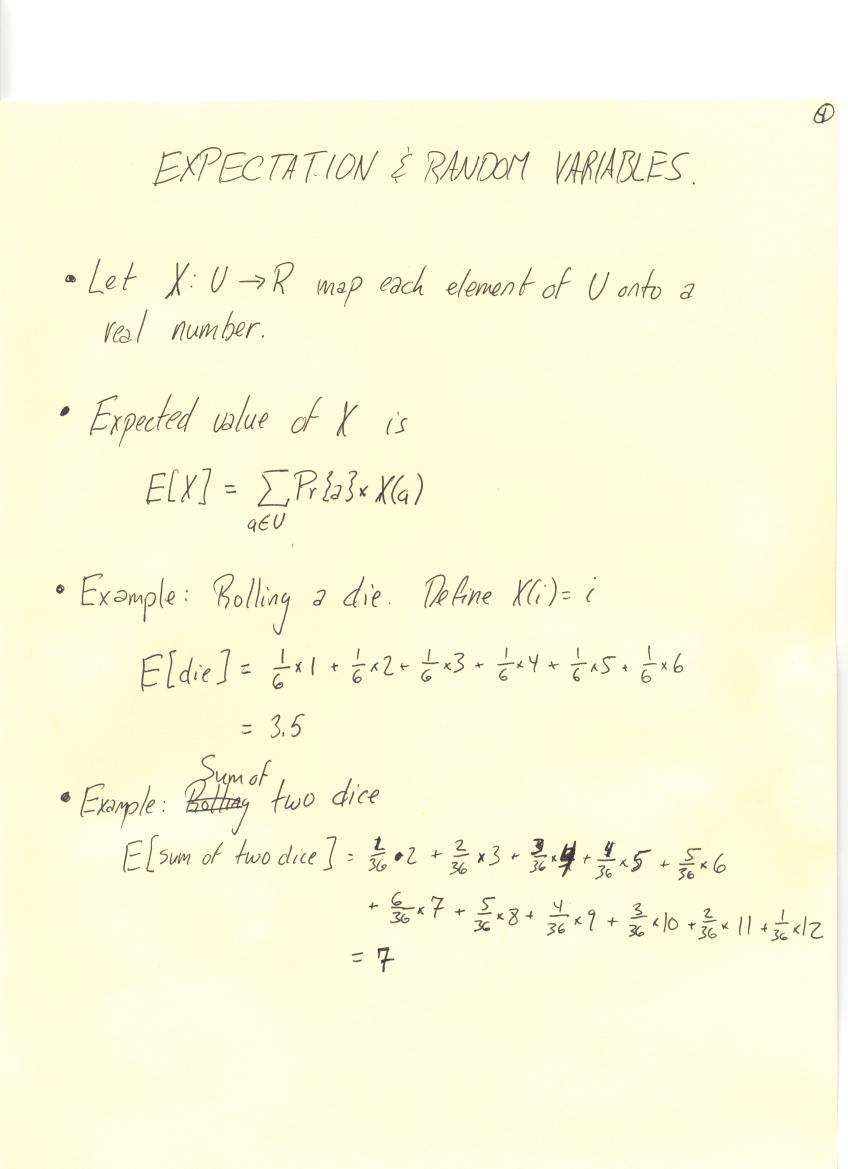 ①
EXPECTATION & RANDOM VARIABLES.
• Let X: U → R map each element of U onto a
real number.
• Expected value of X is
E[X] = ∑ Pr{a} × X(a)
a∈U
• Example: Rolling a die. Define X(i) = i
E[die] = 1/6 × 1 + 1/6 × 2 + 1/6 × 3 + 1/6 × 4 + 1/6 × 5 + 1/6 × 6
= 3.5
Sum of
• Example: Rolling two dice
E[sum of two dice] = 1/36 • 2 + 2/36 × 3 + 3/36 × 4 + 4/36 × 5 + 5/36 × 6
+ 6/36 × 7 + 5/36 × 8 + 4/36 × 9 + 3/36 × 10 + 2/36 × 11 + 1/36 × 12
= 7